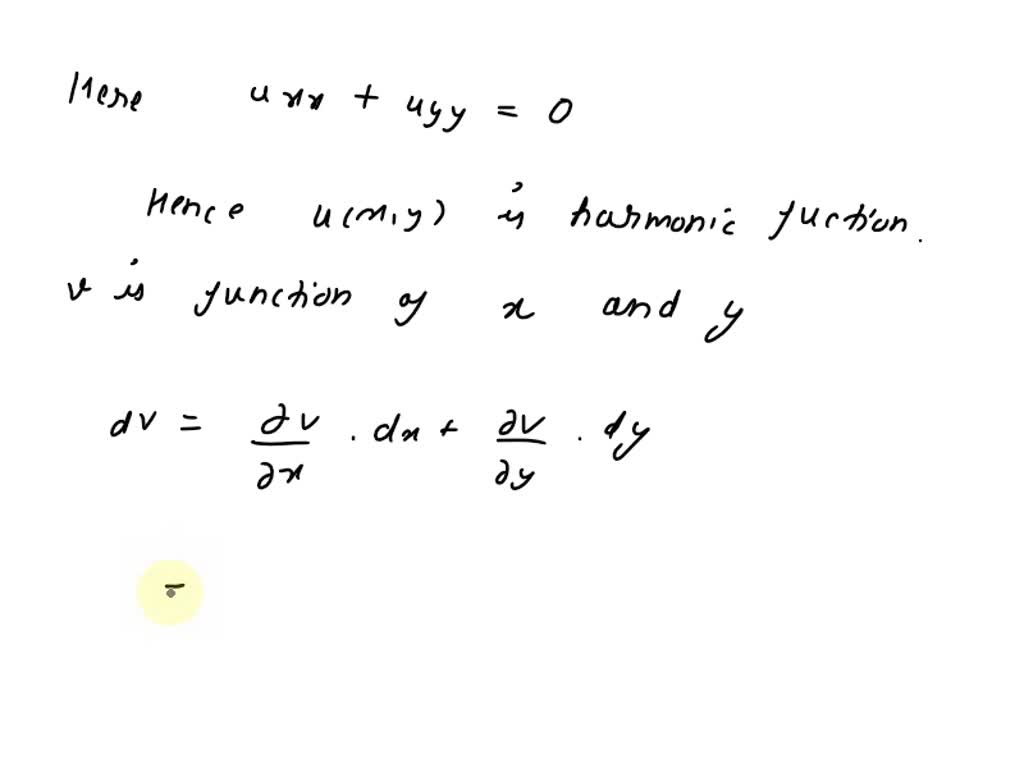 Here uxx + uyy = 0
Hence u(x,y) is harmonic fuction.
v is function of x and y
dv = ∂v/∂x . dx + ∂v/∂y . dy
=